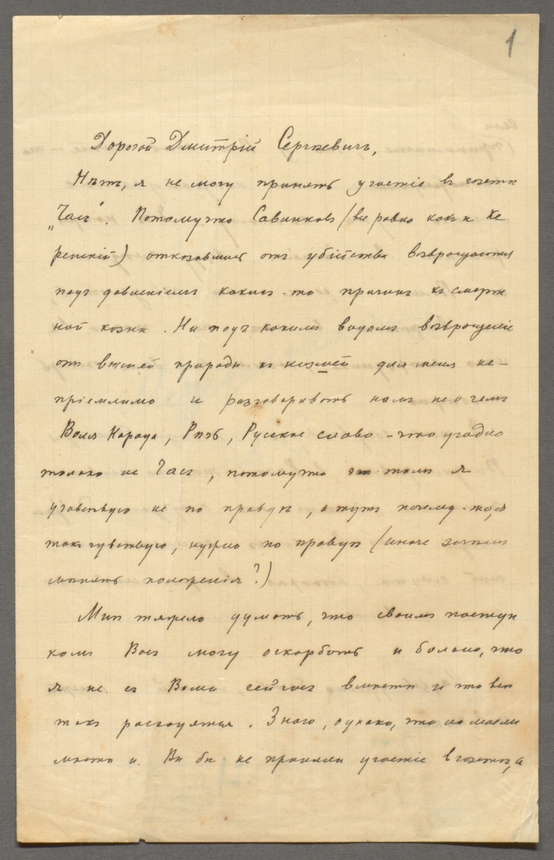 1
Дорогой Дмитрій Сергѣевичъ,
Нѣтъ, я не могу принять участіе въ газетѣ
„Часъ“. Потому что Савинковъ (все равно какъ и Ке
ренскій) отказавшись отъ убійства возвращается
подъ давленіемъ какихъ-то причинъ къ смерт
ной казни. Ни подъ какимъ видомъ возвращеніе
от высшей природы къ низшей для меня не-
пріемлимо и разговаривать намъ не о чемъ
Воля Народа, Рѣчь, Русское слово – что угодно
только не Часъ, потому что тамъ я
участвую не по правдѣ, а тутъ почему-то, я
такъ чувствую, нужно по правдѣ (иначе зачѣмъ
мѣнять положенія?)
Мнѣ тяжело думать, что своимъ поступ
комъ Васъ могу оскорбить и больно, что
я не съ Вами сейчасъ вмѣстѣ и что все
такъ расходятся. Знаю, однако, что на моемъ
мѣстѣ и Вы бы не приняли участіе въ газетѣ, а